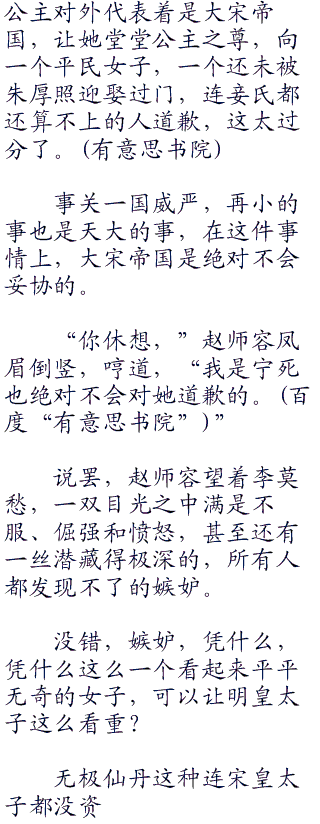 公主对外代表着是大宋帝
国，让她堂堂公主之尊，向
一个平民女子，一个还未被
朱厚照迎娶过门，连妾氏都
还算不上的人道歉，这太过
分了。（有意思书院）
事关一国威严，再小的
事也是天大的事，在这件事
情上，大宋帝国是绝对不会
妥协的。
“你休想，”赵师容凤
眉倒竖，哼道，“我是宁死
也绝对不会对她道歉的。（百
度“有意思书院”）”
说罢，赵师容望着李莫
愁，一双目光之中满是不
服、倔强和愤怒，甚至还有
一丝潜藏得极深的，所有人
都发现不了的嫉妒。
没错，嫉妒，凭什么，
凭什么这么一个看起来平平
无奇的女子，可以让明皇太
子这么看重？
无极仙丹这种连宋皇太
子都没资